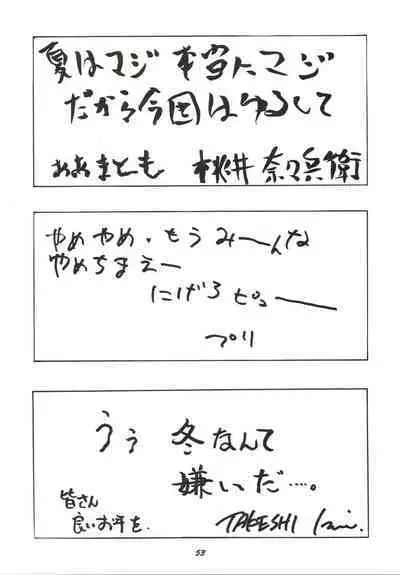 夏はマジ本当にマジ
だから今回はゆるして
おおまとも 桃井奈々兵衛
やめやめ、もうみーんな
やめちまえー
にげろ ピューー
プリ
うぅ 冬なんて
嫌いだ…。
皆さん
良いお年を.
TAKESHI
53